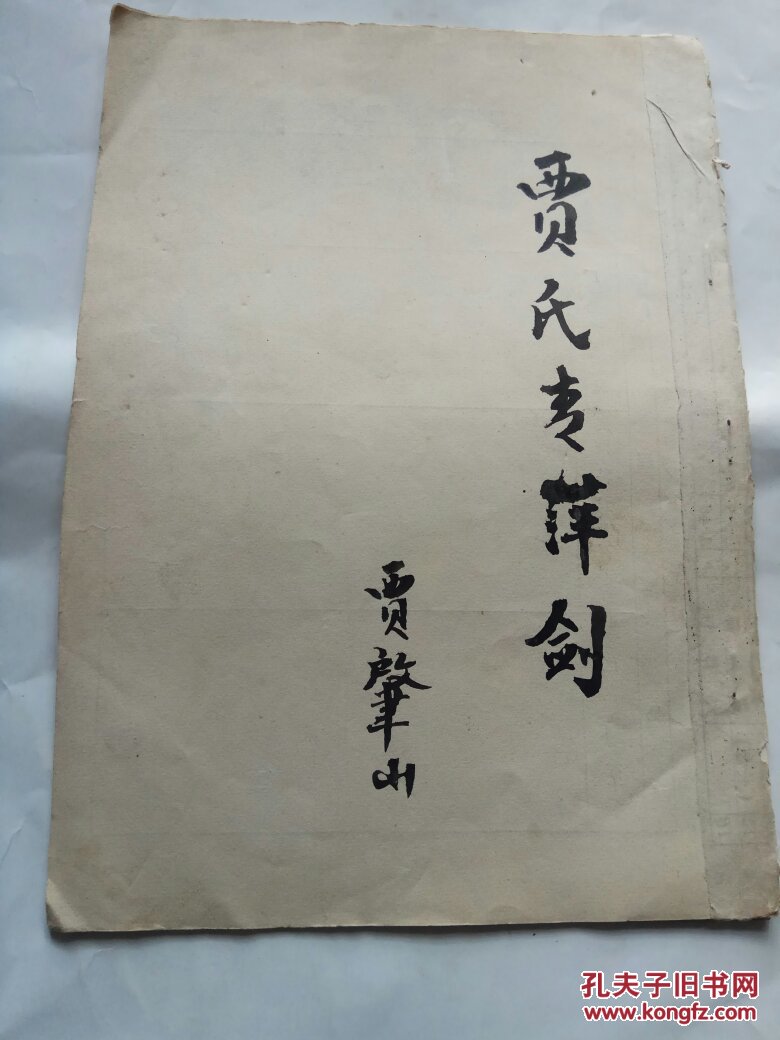 贾氏青萍剑
贾肇山
孔夫子旧书网
www.kongfz.com